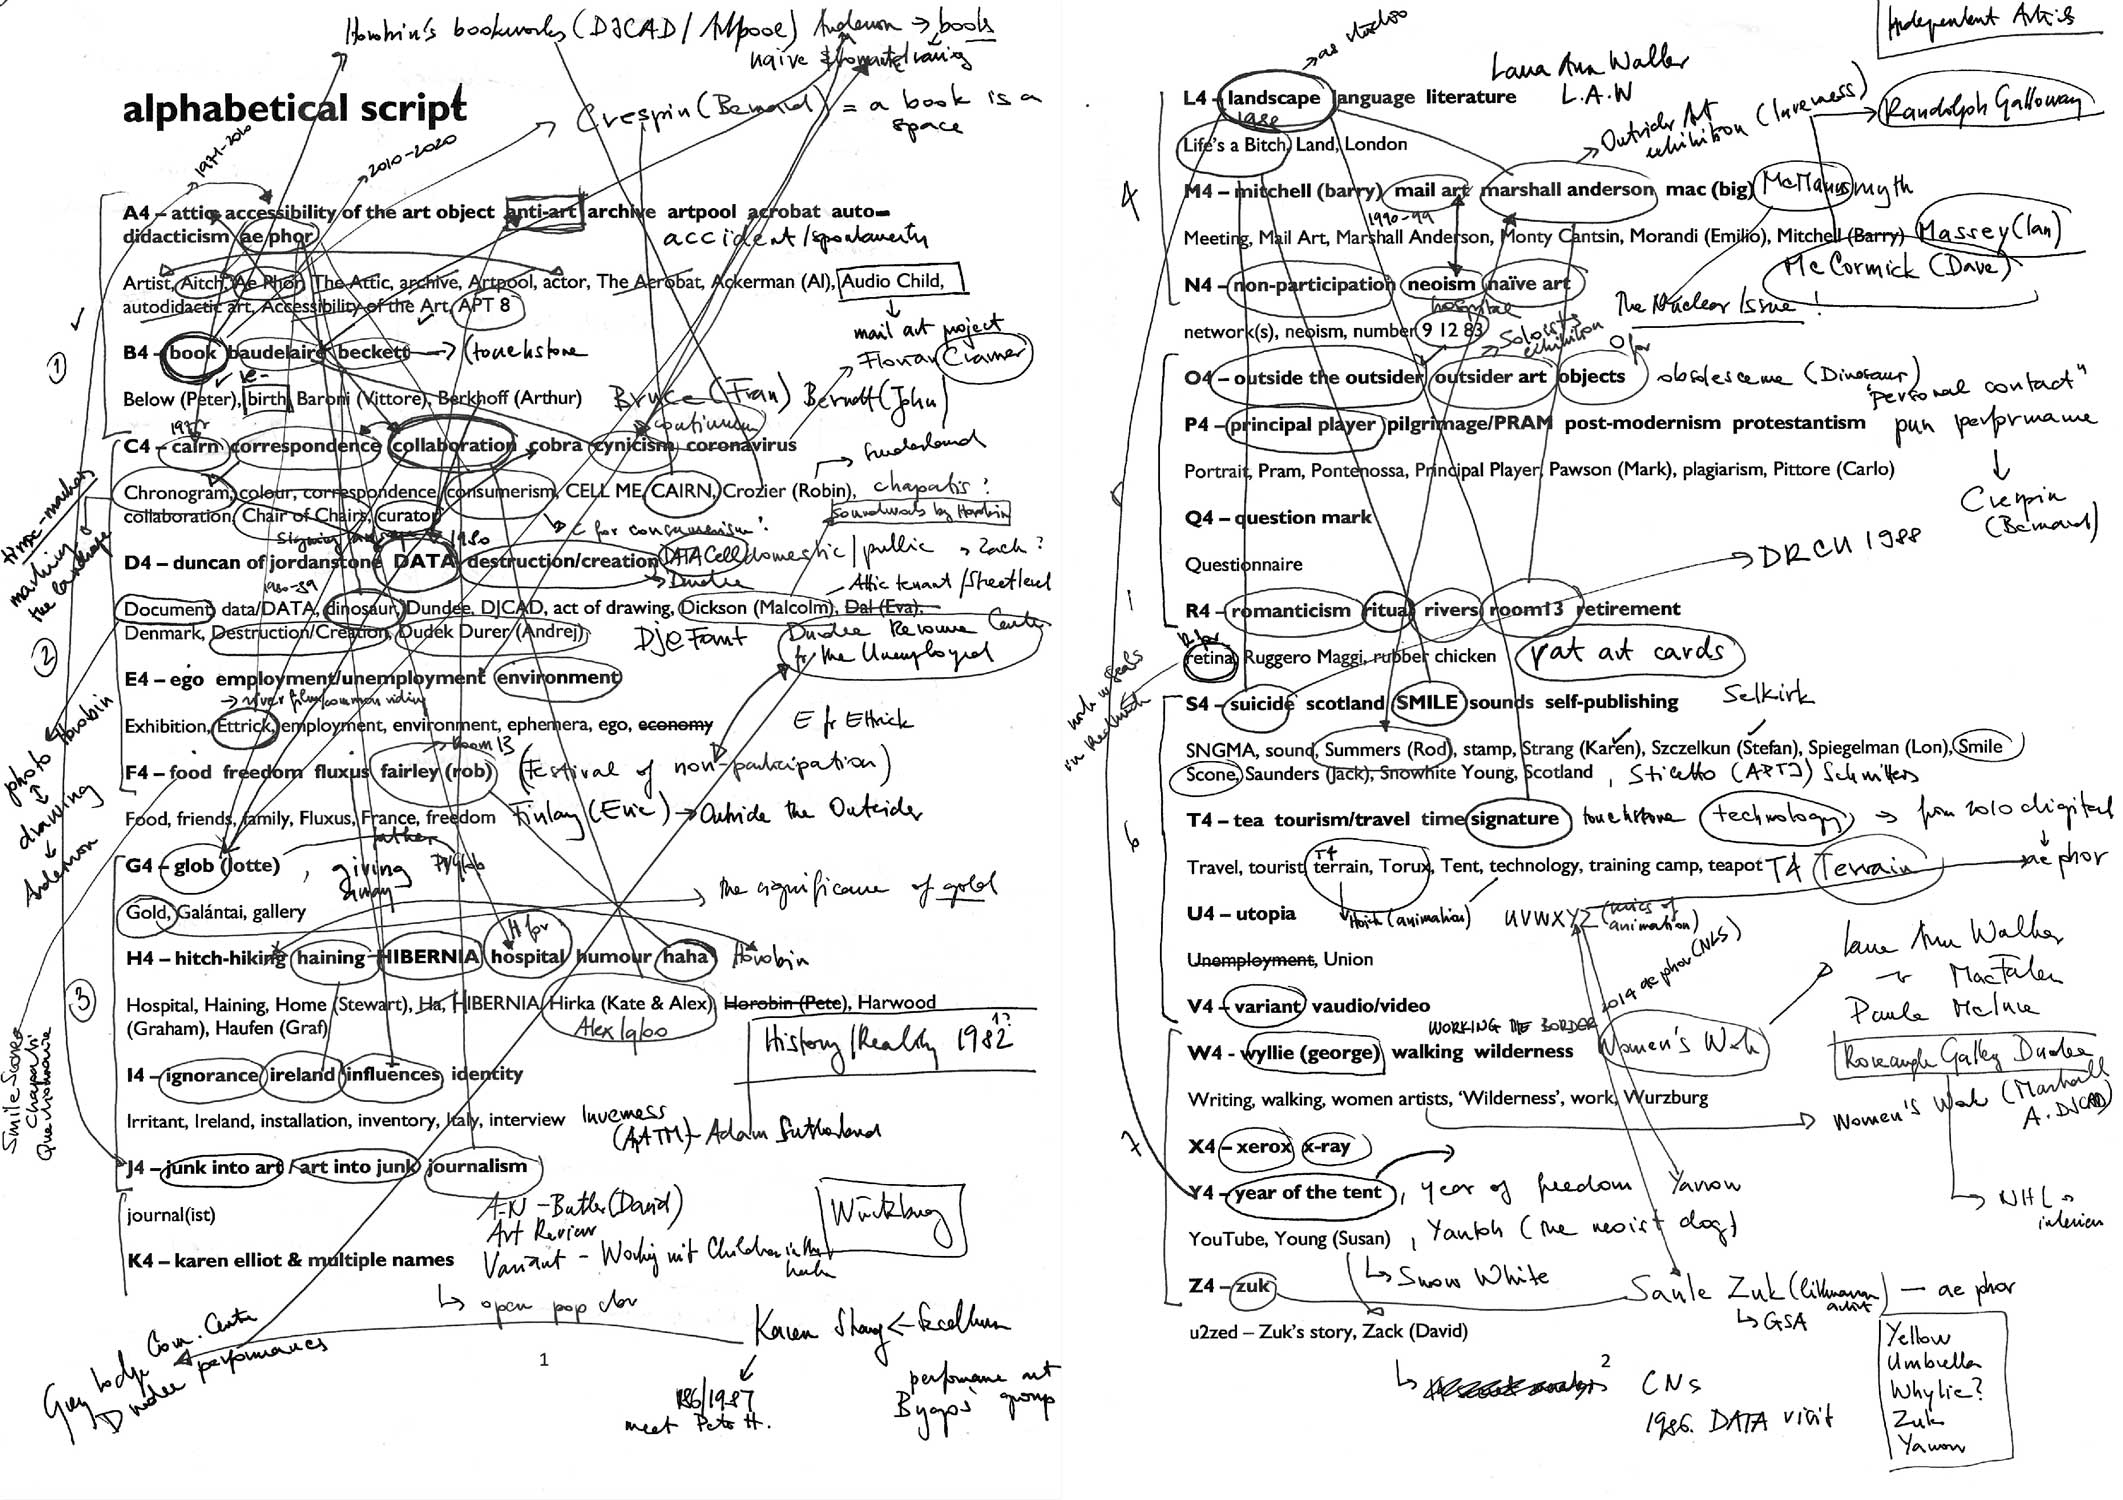 Horobin's bookworks (DJCAD / Artpool) Anderson → books
naive & romantic
alphabetical script
Crespin (Bernard) = a book is a
space
1971-2010
2010-2020
A4 – attic accessibility of the art object anti-art archive artpool acrobat auto–
didacticism ae phor
accident/spontaneity
Artist, Aitch, Ae Phor, The Attic, archive, Artpool, actor, The Aerobat, Ackerman (Al), Audio Child,
autodidactic art, Accessibility of the Art, APT 8
mail art project
Florian Cramer
1
B4 – book baudelaire beckett → (touchstone
Below (Peter), birth, Baroni (Vittore), Berkhoff (Arthur) Bruce (Fran) Berndt (John)
continuum
C4 – cairn correspondence collaboration cobra cynicism coronavirus
Sunderland
Chronogram, colour, correspondence, consumerism, CELL ME, CAIRN, Crozier (Robin), chapatis?
collaboration, Chair of Chairs, curator
soundworks by Horobin
C for consumerism?
1980
D4 – duncan of jordanstone DATA destruction/creation DATA Cell domestic / public → Zack?
Dundee
Attic tenant / Street level
Document, data/DATA, dinosaur, Dundee, DJCAD, act of drawing, Dickson (Malcolm), Dal (Eva),
Denmark, Destruction/Creation, Dudek Durer (Andrej)
Dundee Resource Centre
for the Unemployed
time-markers
marking
the landscape
2
E4 – ego employment/unemployment environment
→ river film/common riding
Exhibition, Ettrick, employment, environment, ephemera, ego, economy E for Ettrick
Room 13
F4 – food freedom fluxus fairley (rob) (Festival of non-participation)
Food, friends, family, Fluxus, France, freedom Finlay (Eric) → Outside the Outsider
father
Horobin
photo
drawing
Anderson
G4 – glob (lotte) , giving
away
the significance of gold
Gold, Galántai, gallery
H for
H4 – hitch-hiking haining HIBERNIA hospital humour haha Horobin
3
Hospital, Haining, Home (Stewart), Ha, HIBERNIA, Hirka (Kate & Alex) Horobin (Pete), Harwood
(Graham), Haufen (Graf)
History/Reality 1982
I4 – ignorance ireland influences identity
Irritant, Ireland, installation, inventory, Italy, interview Inverness
Adam Sutherland
Smile Scone
Chapati
Questionnaire
J4 – junk into art / art into junk journalism
journal(ist)
A-N – Butler (David)
Art Review
Variant – Working with Children in the
Würtzburg
K4 – karen elliot & multiple names
↳ open pop star
Karen Strang ←
Grey Lodge Com. Centre
Dundee performances
1
86/1987
meet Pete H.
performance art
group
Independent Artists
Lana Ann Waller
L.A.W
L4 – landscape language literature
1988
Life's a Bitch, Land, London
Outsider Art
exhibition (Inverness)
Randolph Galloway
4
M4 – mitchell (barry) mail art marshall anderson mac (big) McManus myth
1990-99
Meeting, Mail Art, Marshall Anderson, Monty Cantsin, Morandi (Emilio), Mitchell (Barry) Massey (Ian)
McCormick (Dave)
N4 – non-participation neoism naïve art
The Nuclear Issue!
hospital
network(s), neoism, number, 9 12 83
Soloists
exhibition
O for
O4 – outside the outsider outsider art objects obsolescence (Dinosaur)
"personal contact"
P4 – principal player pilgrimage/PRAM post-modernism protestantism pun performance
Portrait, Pram, Pontenossa, Principal Player, Pawson (Mark), plagiarism, Pittore (Carlo)
Crespin
(Bernard)
Q4 – question mark
DRCU 1988
Questionnaire
R4 – romanticism ritual rivers room13 retirement
R for
retina, Ruggero Maggi, rubber chicken rat art cards
S4 – suicide scotland SMILE sounds self-publishing Selkirk
SNGMA, sound, Summers (Rod), stamp, Strang (Karen), Szczelkun (Stefan), Spiegelman (Lon), Smile
Scone, Saunders (Jack), Snowhite Young, Scotland , Stiletto (APT) Schwitters
T4 – tea tourism/travel time signature touchstone technology → from 2010 digital
6
T4
Travel, tourist, terrain, Torux, Tent, technology, training camp, teapot T4 Terrain → ae phor
U4 – utopia
UVWXYZ
Unemployment, Union
Lana Ann Walker
2014 ae phor (NLS)
V4 – variant vaudio/video
WORKING THE BORDER
W4 - wyllie (george) walking wilderness Women's Work
Roseangle Gallery Dundee
Writing, walking, women artists, 'Wilderness', work, Wurzburg
Women's Work (Marshall
A. DJCAD)
7
X4 – xerox x-ray
Y4 – year of the tent , year of freedom Yarrow
YouTube, Young (Susan) , Yantoh (the neoist dog)
↳ Snow White
Z4 – zuk Saule Zuk — ae phor
↳ GSA
u2zed – Zuk's story, Zack (David)
2
CNs
1986. DATA visit
Yellow
Umbrella
Whylie?
Zuk
Yarrow